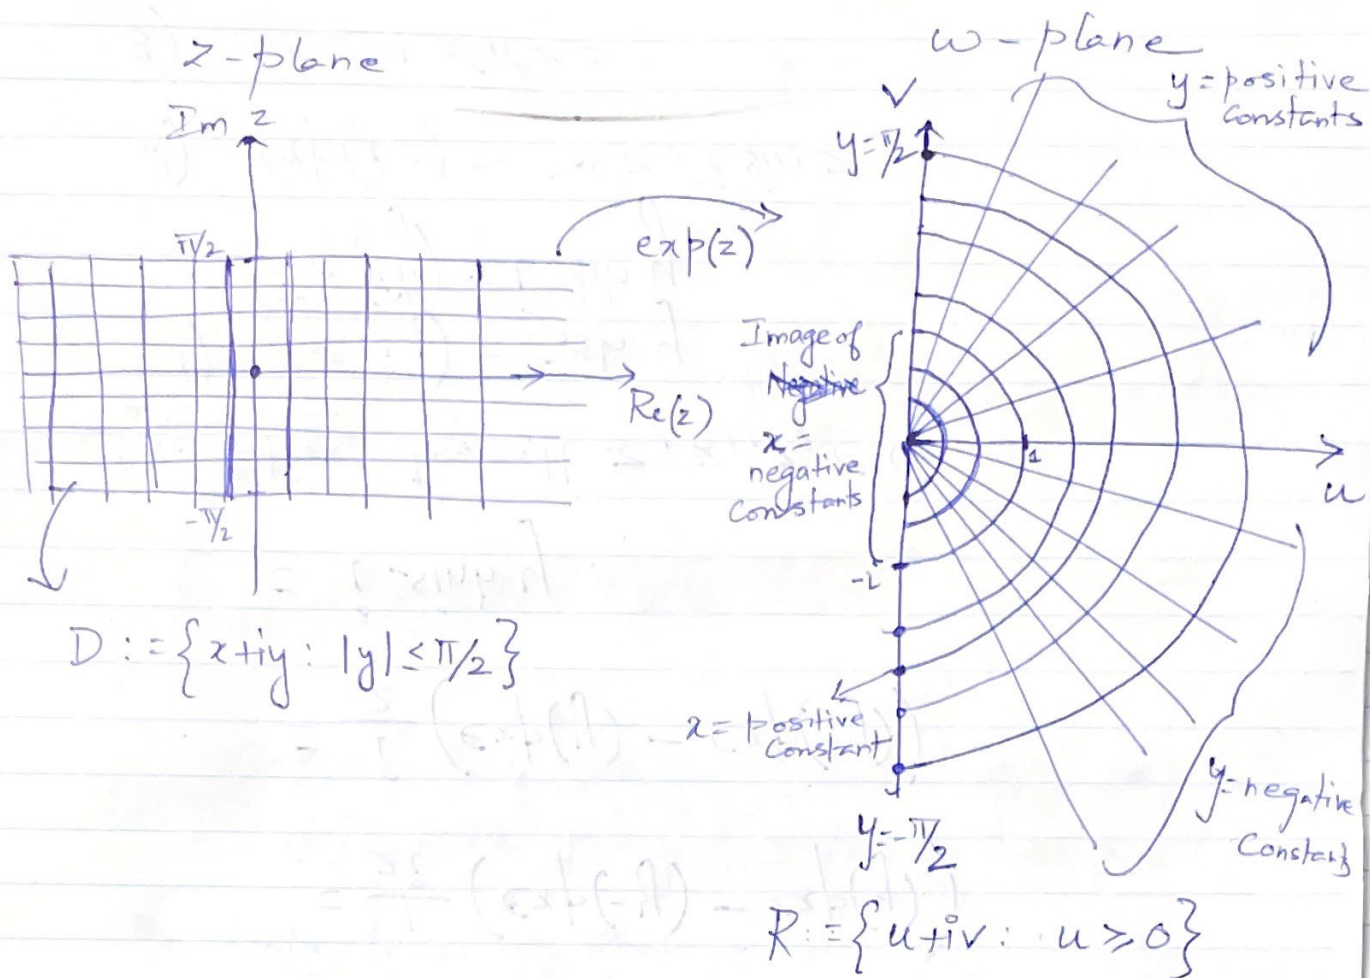 z-plane
Im z
π/2
-π/2
Re(z)
exp(z)
D := {x+iy : |y| ≤ π/2}
w-plane
V
y = π/2
y = positive
constants
Image of
x =
negative
Constants
1
u
x = positive
Constant
y = -π/2
y = negative
Constants
R := {u+iv : u ≥ 0}